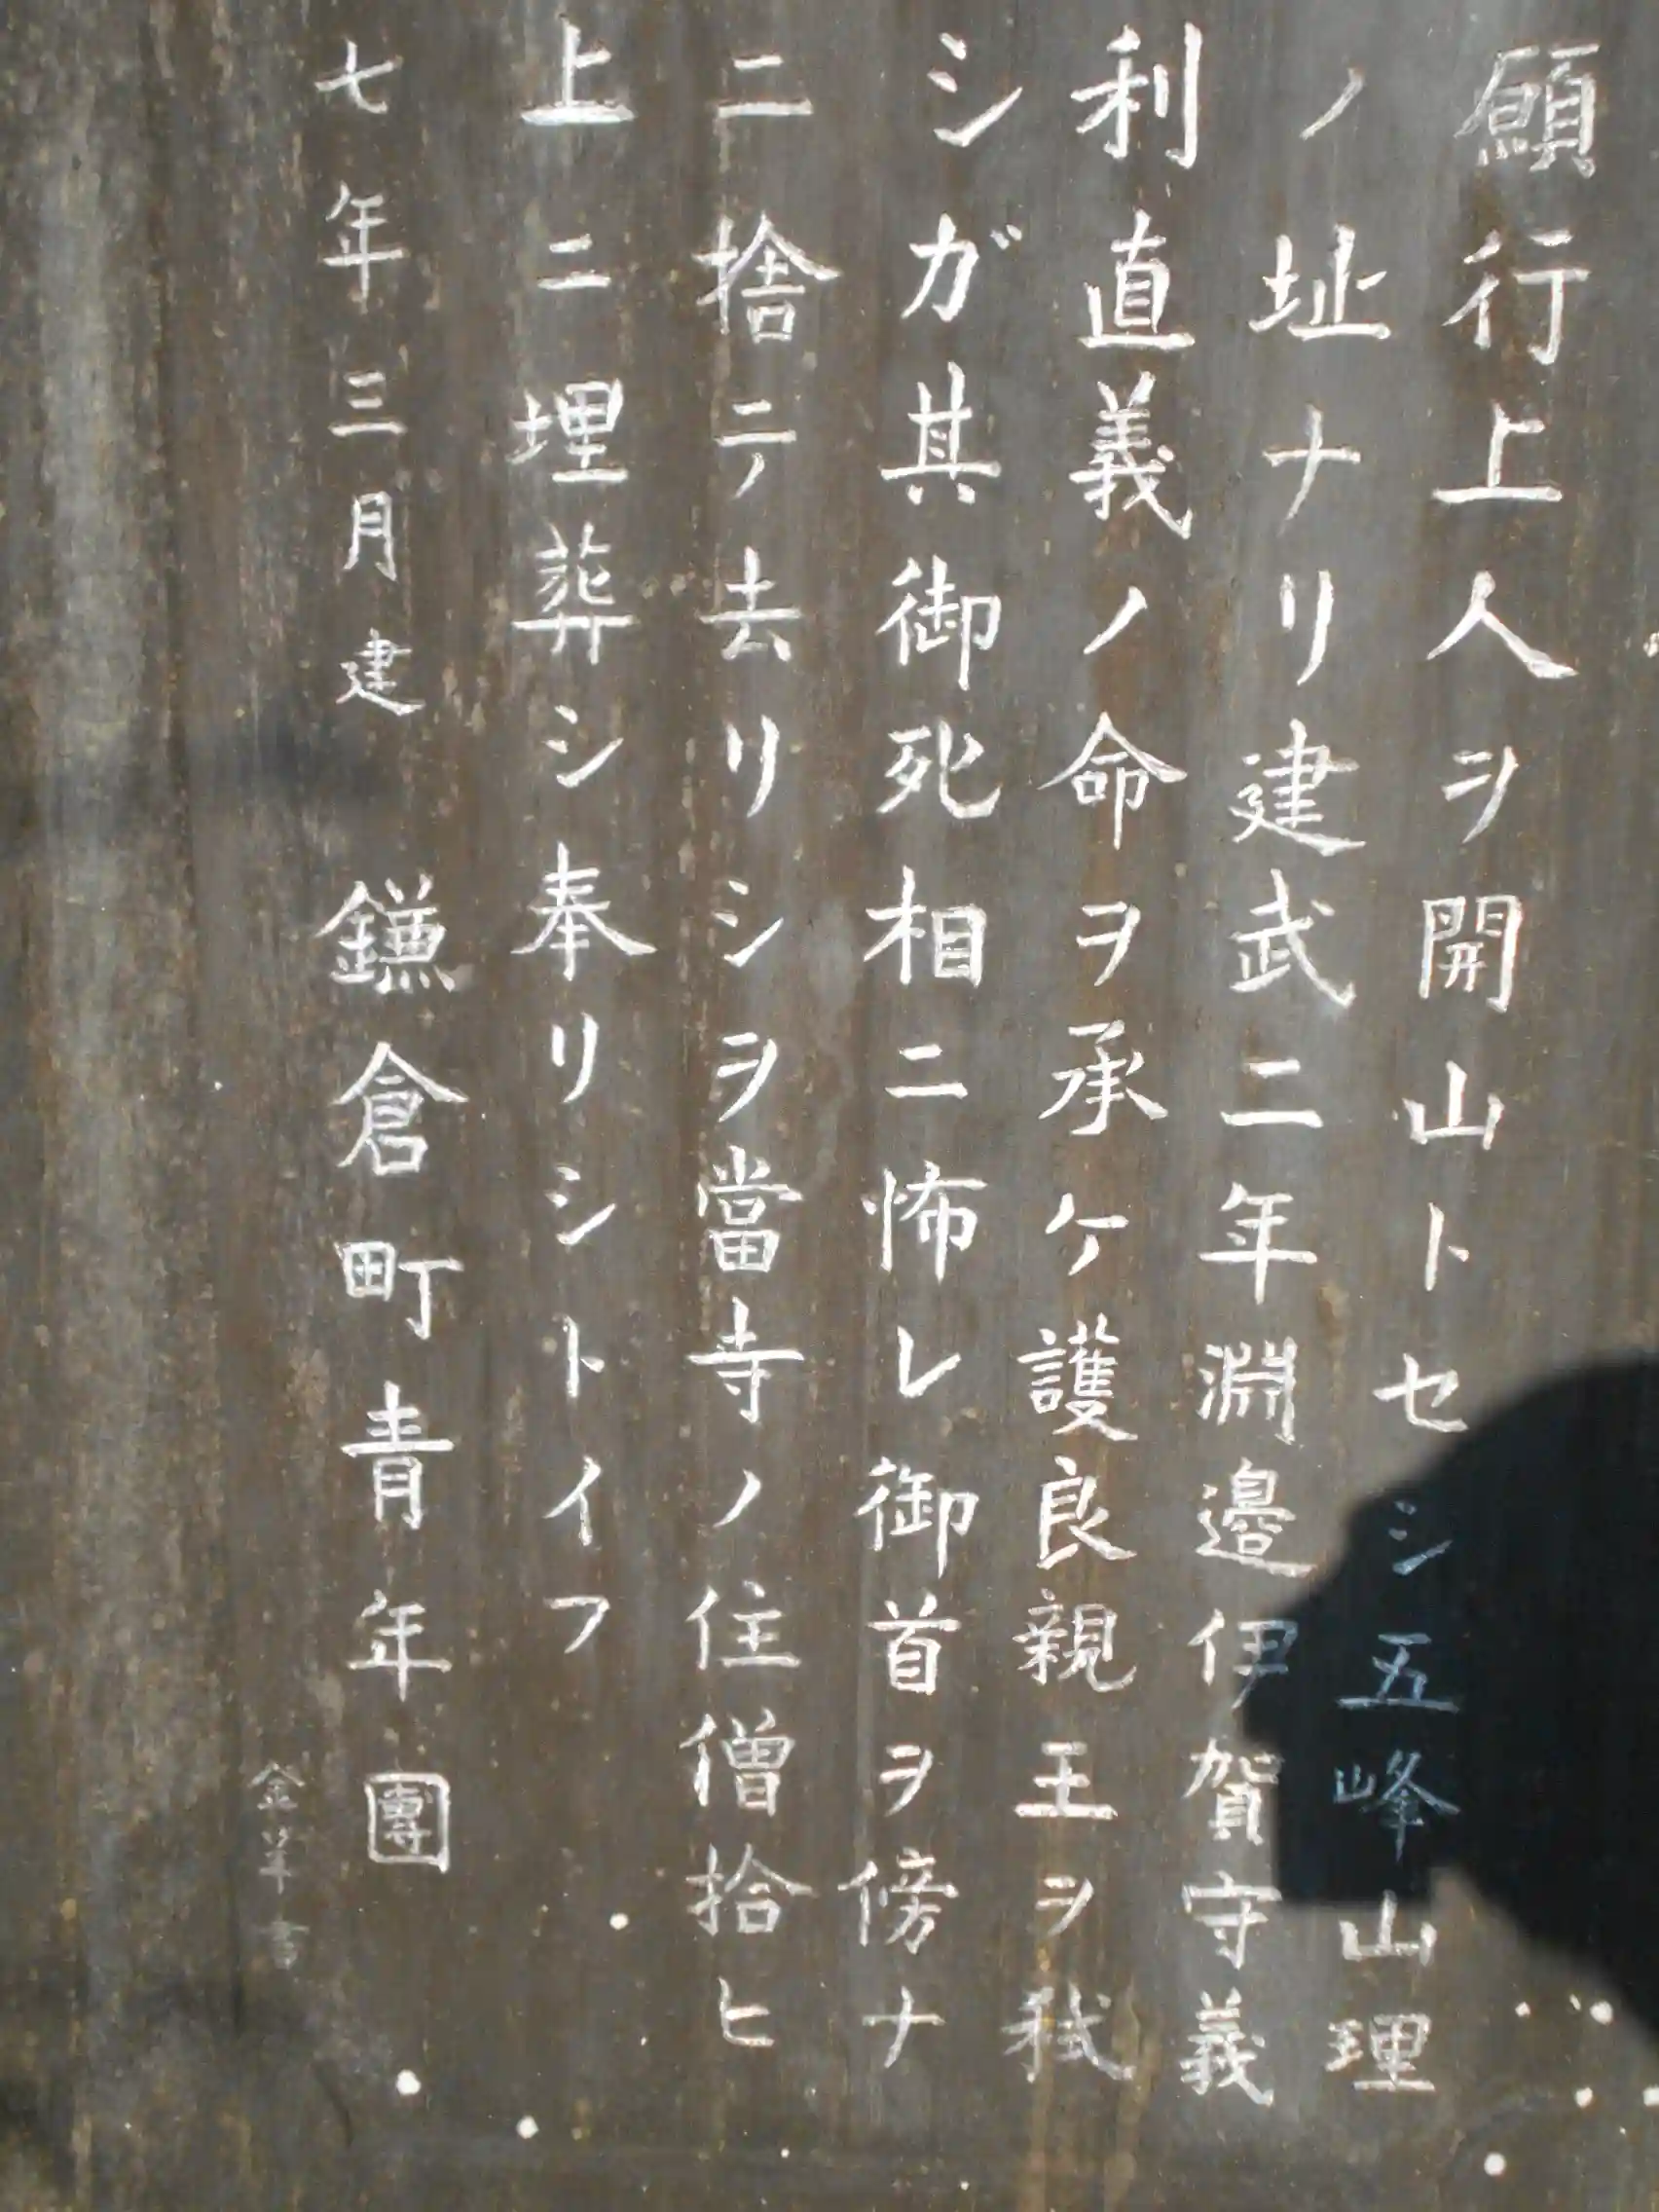 願行上人ヲ開山トセシ五峰山理
ノ址ナリ建武二年淵邊伊賀守義
利直義ノ命ヲ承ケ護良親王ヲ弑
シガ其御死相ニ怖レ御首ヲ傍ナ
ニ捨テ去リシヲ當寺ノ住僧拾ヒ
上ニ埋葬シ奉リシトイフ
七年三月建 鎌倉町青年團
書